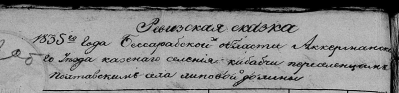 Ревизская сказка
1835го года Бессарабской области Аккерманска
го уезда казенаго селения кубабчи переселенцамъ
Полтавскимъ села липовой долины